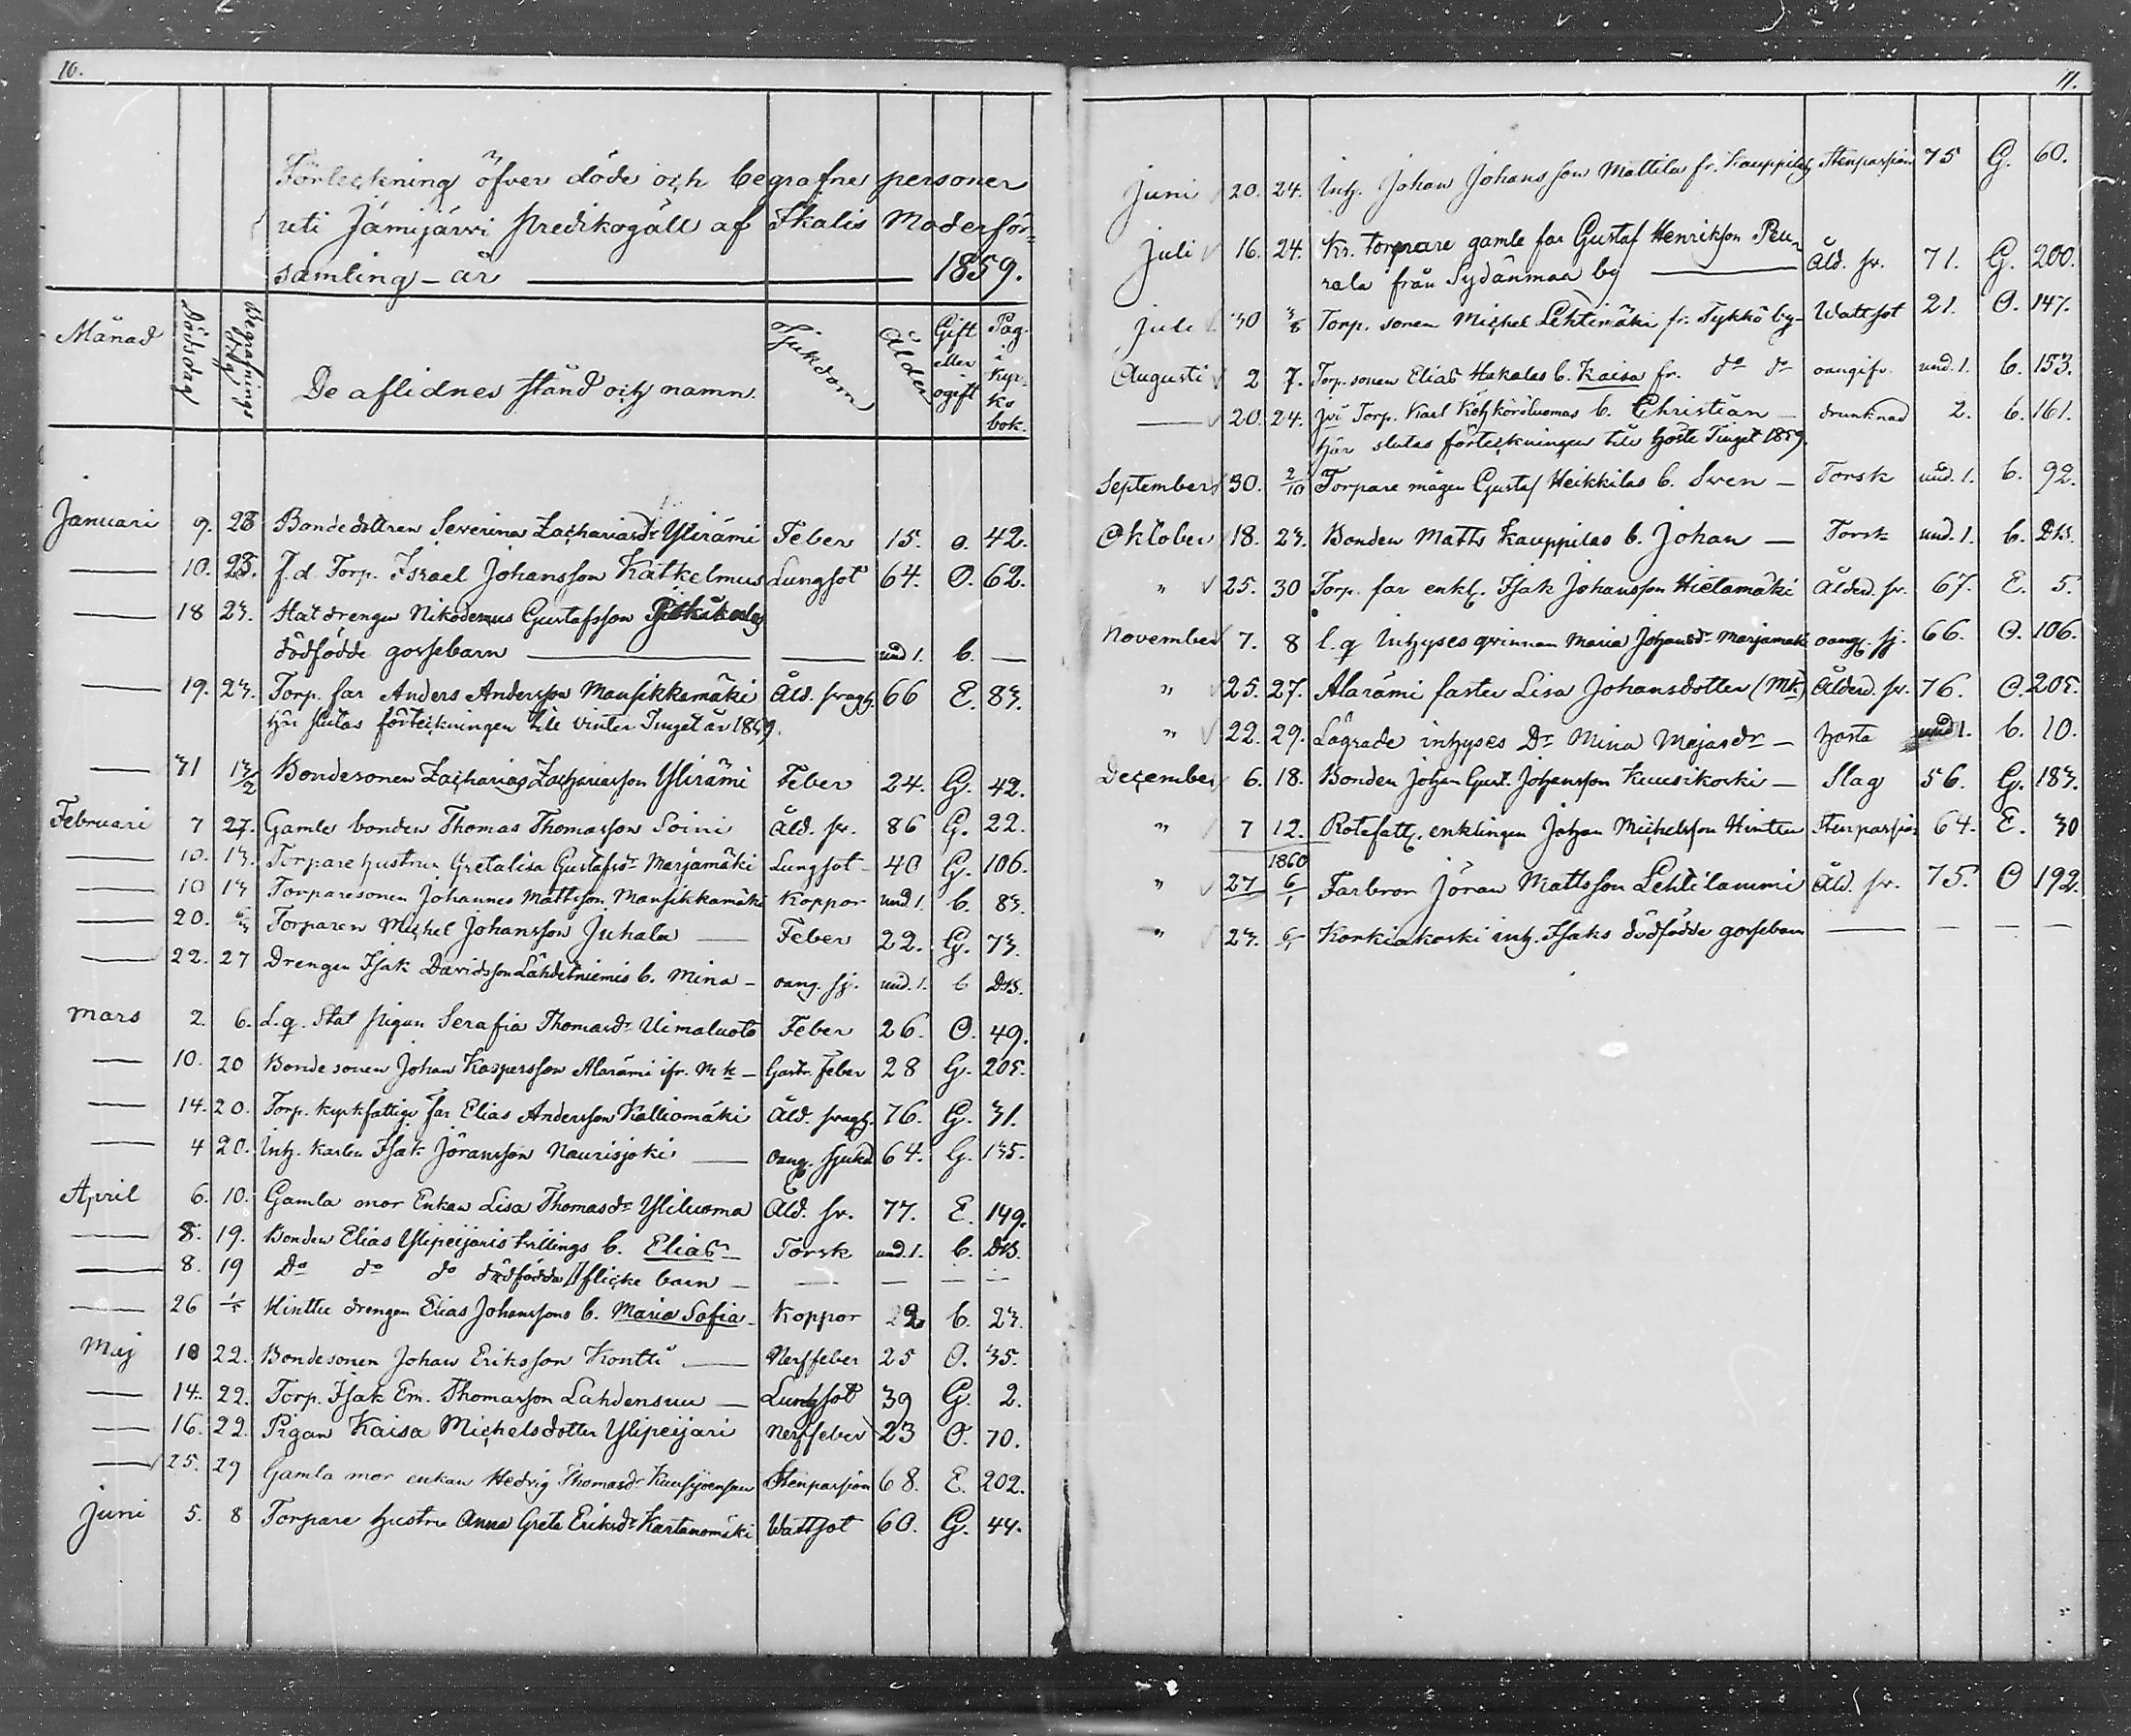 10.
Förteckning öfver döde och begrafne personer
uti Jämijärvi Predikogäll af Ikalis Moderför=
samling – år — 1859.
Månad Dödsdag Begrafnings dag De aflidnes stånd och namn. Sjukdom Ålder Gift eller ogift Pag. i kyrko bok.
Januari 9. 23 Bondedottren Severina Zachariasdr Ylirämi Feber 15. o. 42.
— 10. 23. f.d. Torp. Israel Johansson Kätkelmus Lungsot 64. O. 62.
— 18 23. Statdrengen Nikodemus Gustafsson
dödfödde gossebarn — — und 1. b. —
— 19. 23. Torp. far Anders Andersson Mansikkamäki Åld. svagh. 66 E. 83.
här slutas förteckningen till vinter Tinget år 1859.
— 31 13/2 Bondesonen Zacharias Zachariasson Ylirämi Feber 24. G. 42.
Februari 7 27. Gamle bonden Thomas Thomasson Soini Åld. sv. 86 G. 22.
— 10. 13. Torpare hustrun Gretalisa Gustafsdr Marjamäki Lungsot 40 G. 106.
— 10 13 Torparesonen Johannes Mattsson Mansikkamäki Koppor und 1. b. 83.
— 20. 6/3 Torparen Michel Johansson Juhala — Feber 22. G. 73.
— 22. 27 Drengen Isak Davidsson Lähdetniemis b. Mina – oang. sj. und. 1. b DB.
Mars 2. 6. L.q. Stat pigan Serafia Thomasdr Uimaluoto Feber 26. O. 49.
— 10. 20 Bonde sonen Johan Kaspersson Alarämi ifr. Mk – Gastr. feber 28 G. 205.
— 14. 20. Torp. kyrkfattige far Elias Andersson Kalliomäki Åld. svagh. 76. G. 31.
— 4 20. Inh. karlen Isak Jöransson Naurisjoki — oang. sjukd 64. G. 135.
April 6. 10. Gamla mor Enkan Lisa Thomasdr Yliluoma Åld. sv. 77. E. 149.
— 8. 19. Bonden Elias Ylipeijaris tvillings b. Elias – Torsk und. 1. b. DB.
— 8. 19 Do do do dödfödda flicke barn – — — — —
— 26 1/5 Hinttu drengen Elias Johanssons b. Maria Sofia – Koppor 2 b. 23.
Maj 10 22. Bondesonen Johan Eriksson Kontti — Nerffeber 25 O. 35.
— 14. 22. Torp. Isak Em. Thomasson Lahdensuu — Lungsot 39 G. 2.
— 16. 22. Pigan Kaisa Michelsdotter Ylipeijari Nerffeber 23 O. 70.
— 25. 29 Gamla mor enkan Hedvig Thomasdr Stenpassion 68. E. 202.
Juni 5. 8 Torpare hustru Anna Greta Eriksdr Kartanomäki Wattsot 60. G. 44.
11.
Juni 20. 24. Inh. Johan Johansson Mattila fr. Kauppila Stenpassion 75 G. 60.
Juli 16. 24. Kr. Torpare gamle far Gustaf Henrikson Peu=
rala från Sydänmaa by — Åld. sv. 71. G. 200.
Juli 30 3/8 Torp. sonen Michel Lehtimäki fr. Tykkö by – Wattsot 21. O. 147.
Augusti 2 7. Torp. sonen Elias Hakalas b. Kaisa fr. do do oangifv. und. 1. b. 153.
— 20. 24. Torp. Karl b. Christian – drunknad 2. b. 161.
här slutas förteckningen till höste Tinget 1859.
September 30. 2/10 Torpare mågen Gustaf Heikkilas b. Sven – Torsk und. 1. b. 92.
Oktober 18. 23. Bonden Matts Kauppilas b. Johan — Torsk und. 1. b. DB.
" 25. 30 Torp. far enkl. Isak Johansson Hietamäki Ålderd. sv. 67. E. 5.
November 7. 8 l.q Inhyses qvinnan Maria Johansdr Marjamäki oang. sj. 66. O. 106.
" 25. 27. Alarämi faster Lisa Johansdotter (Mk) Ålderd. sv. 76. O. 205.
" 22. 29. Lägrade inhyses Dr Mina Majasdr – hosta und 1. b. 10.
December 6. 18. Bonden Johan Gust. Johansson Kuusikoski – Slag 56. G. 183.
" 7 12. Rotefatt. enklingen Johan Michelsson Hinttu Stenpassion 64. E. 30
1860
" 27 6/1 Farbron Jöran Mattsson Lehtilammi Åld. sv. 75. O 192.
" 23. 6/1 Korkiakoski inh. Isaks dödfödde gossebarn — — — —